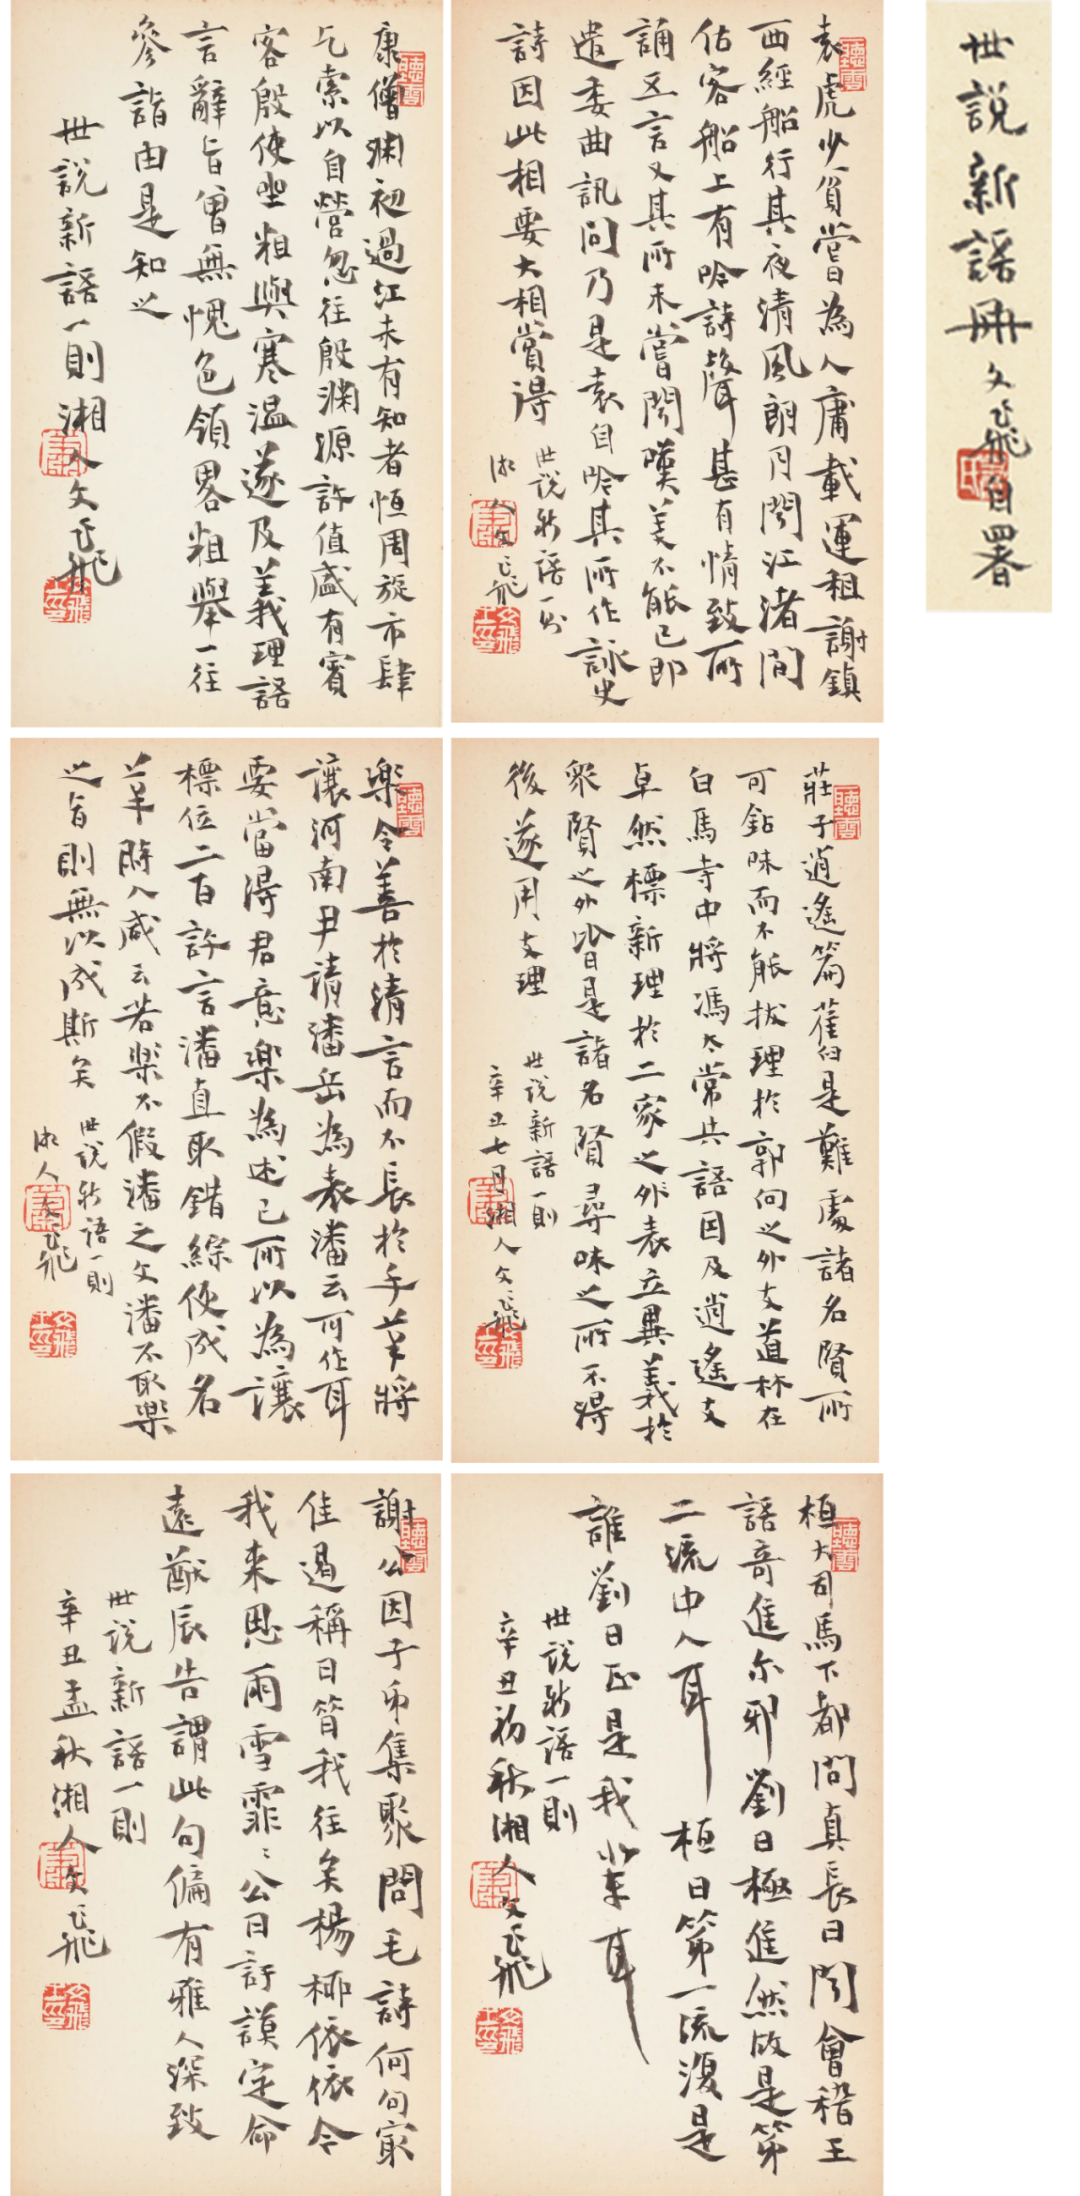 世說新語冊 文飛自署
袁虎少貧嘗為人庸載運租謝鎮
西經船行其夜清風朗月聞江渚間
估客船上有吟詩聲甚有情致所
誦五言又其所未嘗聞嘆美不能已即
遣委曲訊問乃是袁自吟其所作詠史
詩因此相要大相賞得
世說新語一則
湘人文飛
康僧淵初過江未有知者恒周旋市肆
乞索以自營忽往殷淵源許值盛有賓
客殷使坐粗與寒溫遂及義理語
言辭旨曾無愧色領畧粗舉一往
參詣由是知之
世說新語一則湘人文飛
莊子逍遙篇舊是難處諸名賢所
可鉆味而不能拔理於郭向之外支道林在
白馬寺中將馮太常共語因及逍遙支
卓然標新理於二家之外表立異義於
眾賢之外皆是諸名賢尋味之所不得
後遂用支理
世說新語一則
辛丑七月湘人文飛
樂令善於清言而不長於手筆將
讓河南尹請潘岳為表潘云可作耳
要當得君意樂為述己所以為讓
標位二百許言潘直取錯綜便成名
筆時人咸云若樂不假潘之文潘不取樂
之旨則無以成斯矣
世說新語一則
湘人文飛
桓大司馬下都問真長曰聞會稽王
語奇進尒邪劉曰極進然故是第
二流中人耳 桓曰第一流復是
誰劉曰正是我輩耳
世說新語一則
辛丑初秋湘人文飛
謝公因子弟集聚問毛詩何句最
佳遏稱曰昔我往矣楊柳依依今
我來思雨雪霏〻公曰訏謨定命
遠猷辰告謂此句偏有雅人深致
世說新語一則
辛丑孟秋湘人文飛